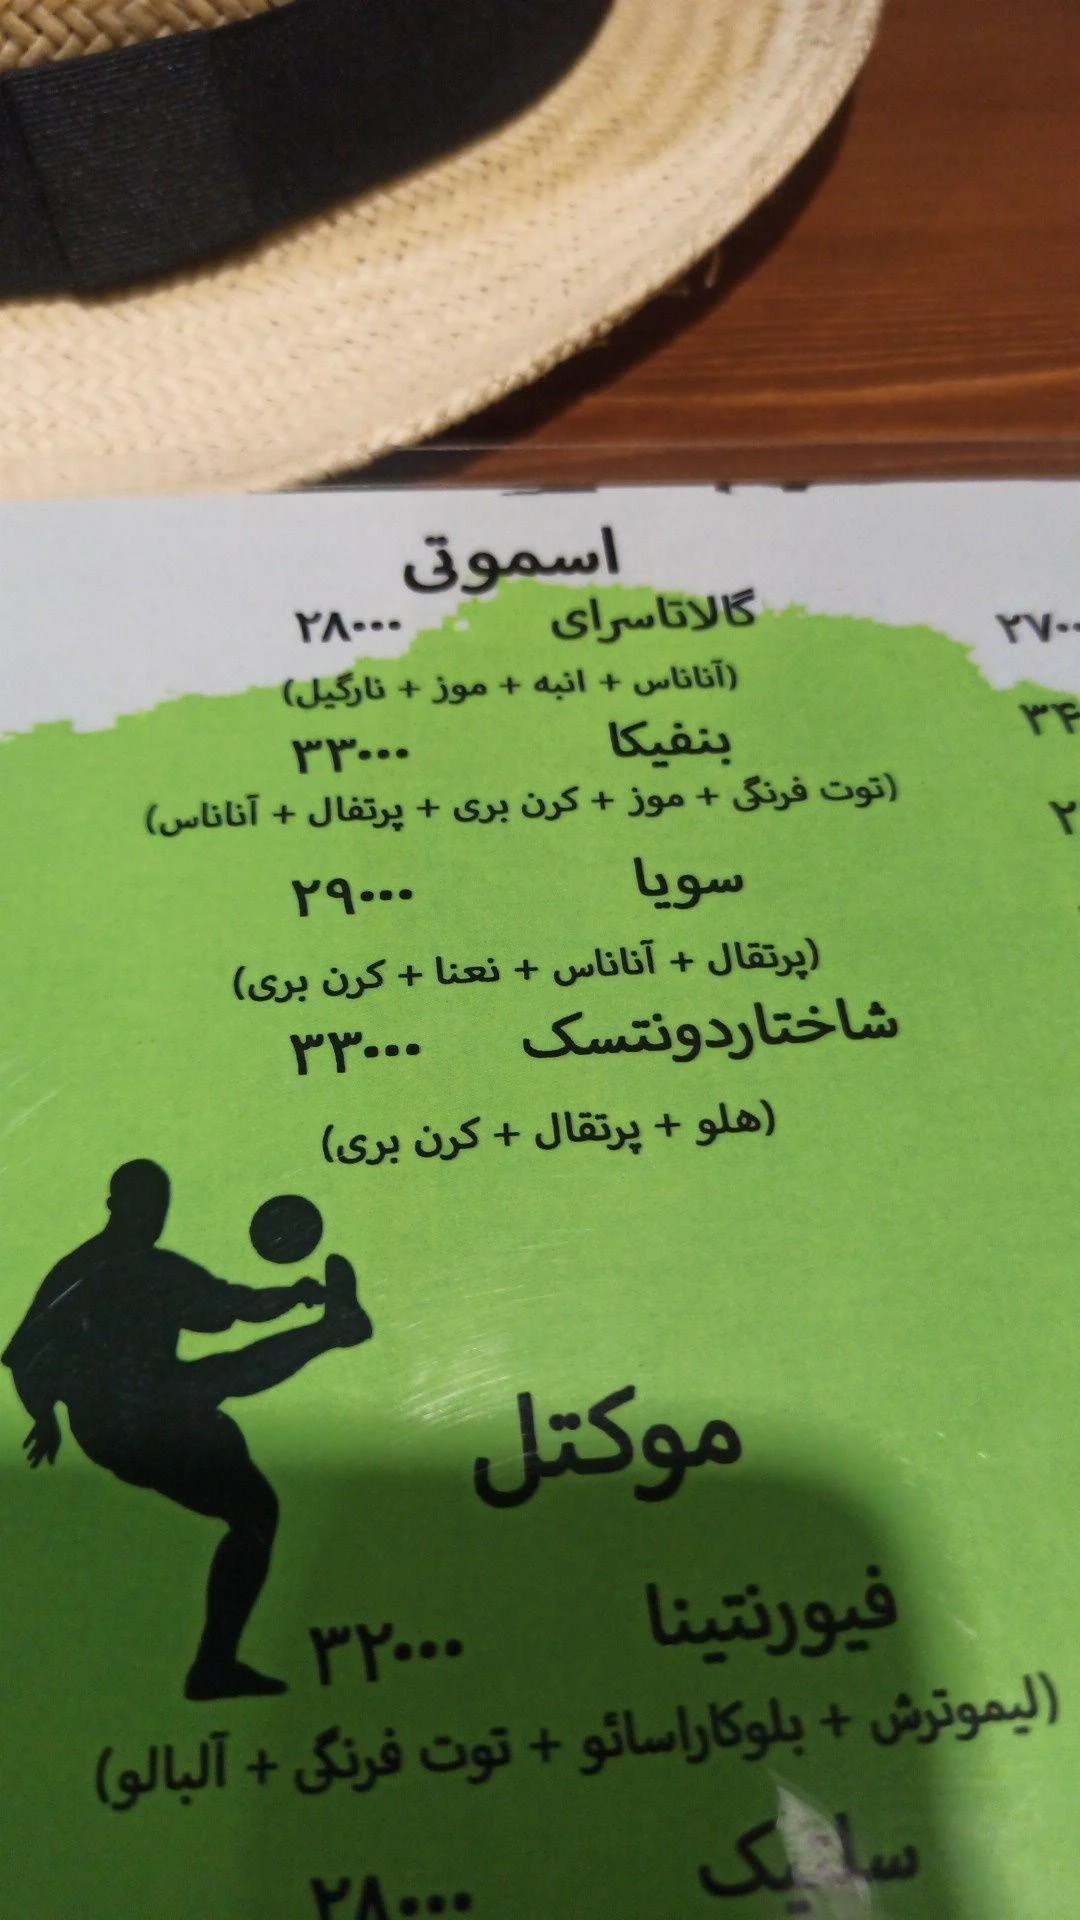 اسموتی
گالاتاسرای ۲۸۰۰۰
(آناناس + انبه + موز + نارگیل)
بنفیکا ۳۳۰۰۰
(توت فرنگی + موز + کرن بری + پرتفال + آناناس)
سویا ۲۹۰۰۰
(پرتقال + آناناس + نعنا + کرن بری)
شاختاردونتسک ۳۳۰۰۰
(هلو + پرتقال + کرن بری)
موکتل
فیورنتینا ۳۲۰۰۰
(لیموترش + بلوکاراسائو + توت فرنگی + آلبالو)
۲۸۰۰۰